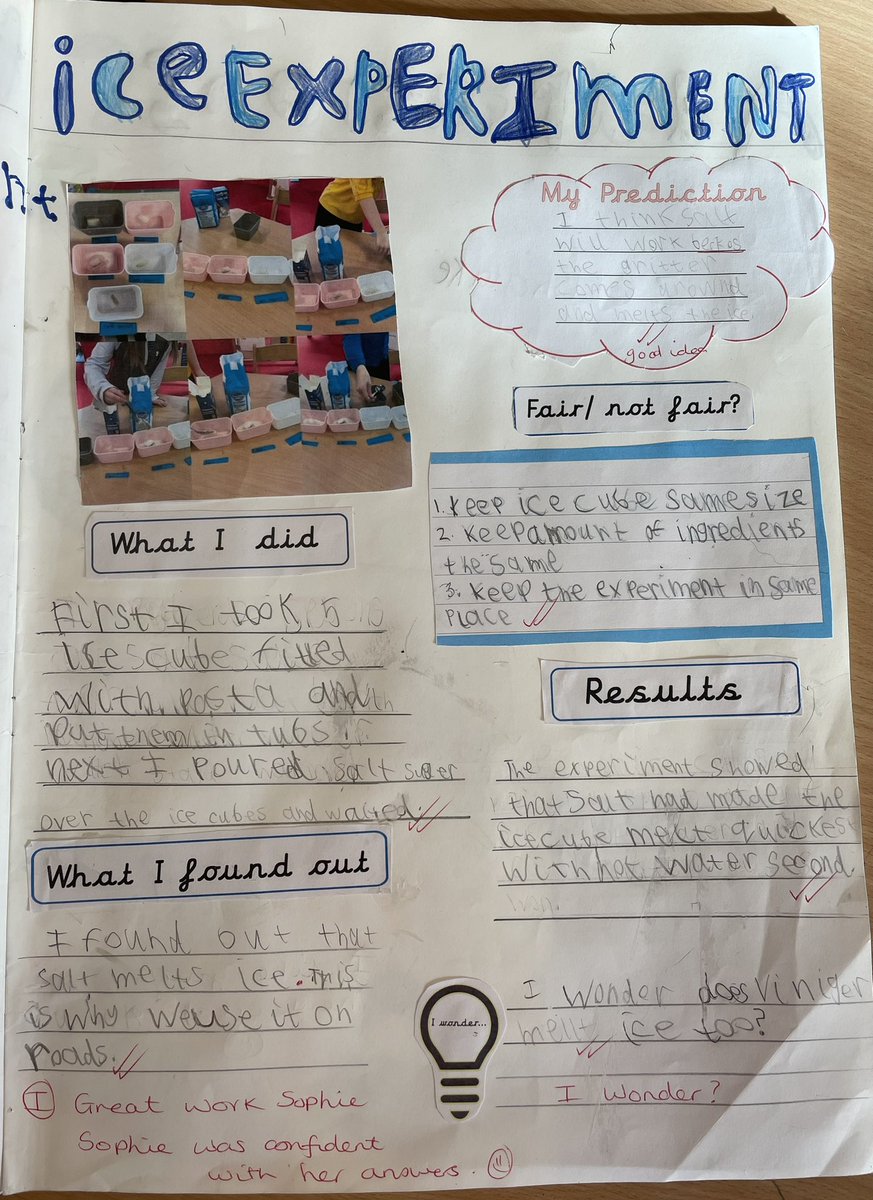 ice EXPERIMENT
nt
My Prediction
I think salt
will work beckos
the gritter
comes around
and melts the ice
good idea
Fair/ not fair?
1. Keep ice cube same size
2. Keep amount of ingredients
the same
3. Keep the experiment in same
place
What I did
First I took 5
ice cubes filled
with pasta and
put them in tubs
next I poured salt
over the ice cubes and waited.
What I found out
I found out that
salt melts ice. This
is why we use it on
roads.
Results
The experiment showed
that salt had made the
ice cube melt quickest
With hot water second.
I wonder...
I wonder does viniger
melt ice too?
I wonder?
I Great work Sophie
Sophie was confident
with her answers.